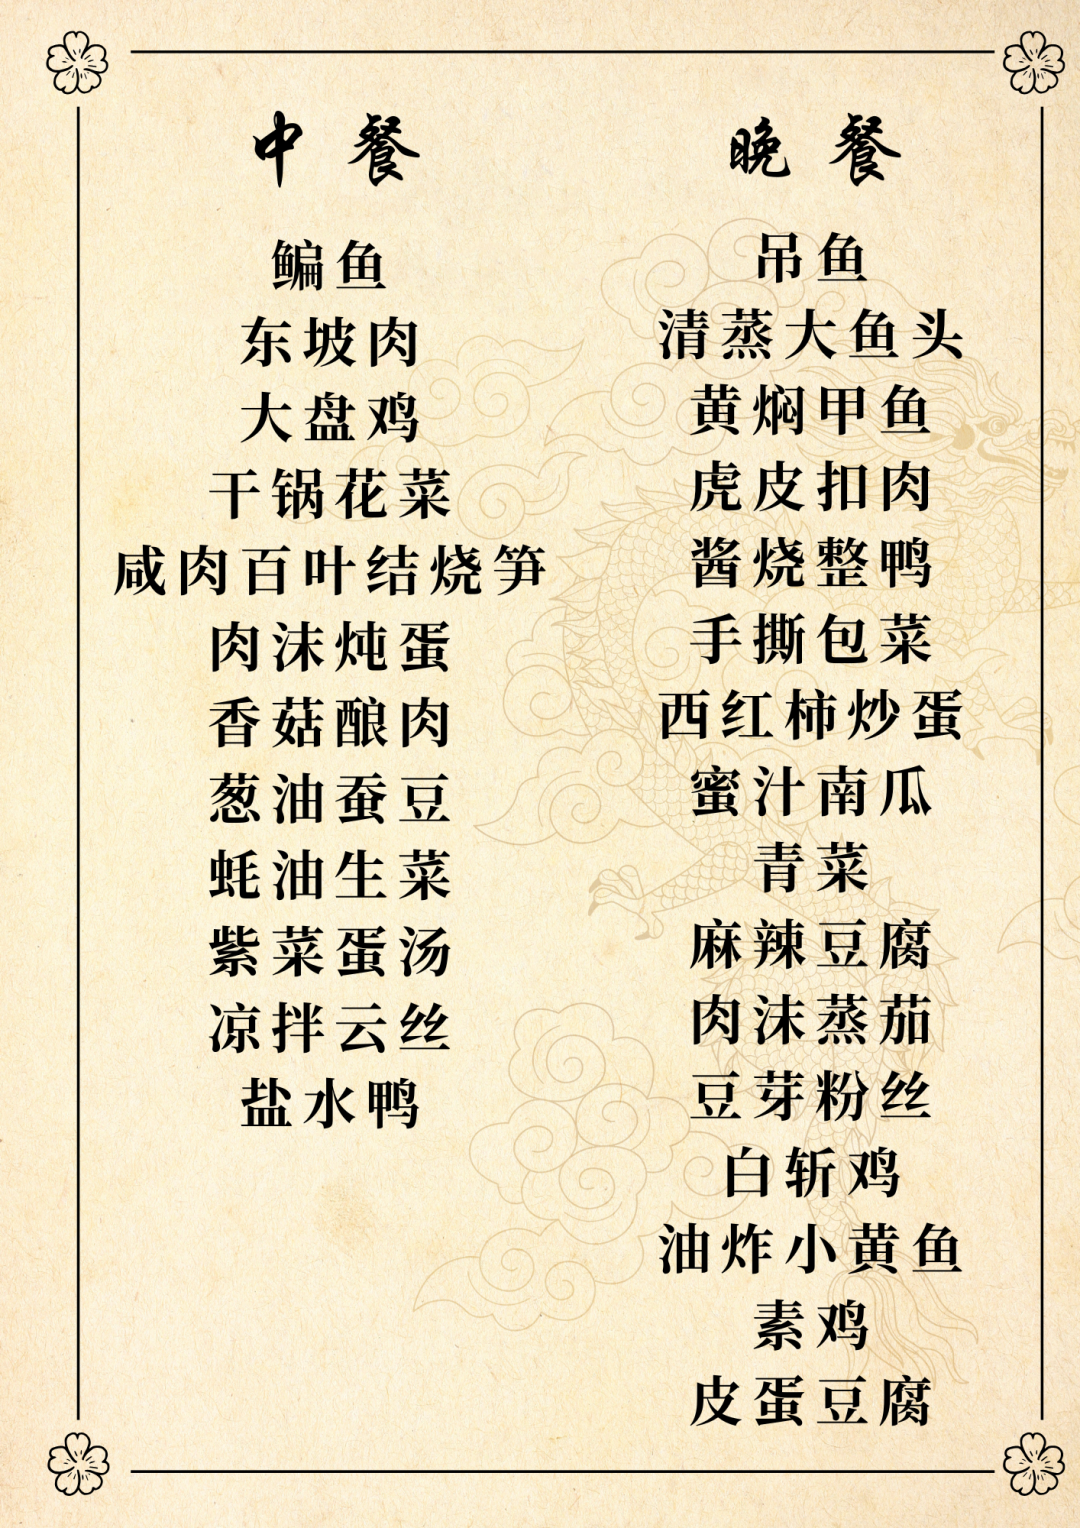 中餐
鳊鱼
东坡肉
大盘鸡
干锅花菜
咸肉百叶结烧笋
肉沫炖蛋
香菇酿肉
葱油蚕豆
蚝油生菜
紫菜蛋汤
凉拌云丝
盐水鸭
晚餐
吊鱼
清蒸大鱼头
黄焖甲鱼
虎皮扣肉
酱烧整鸭
手撕包菜
西红柿炒蛋
蜜汁南瓜
青菜
麻辣豆腐
肉沫蒸茄
豆芽粉丝
白斩鸡
油炸小黄鱼
素鸡
皮蛋豆腐